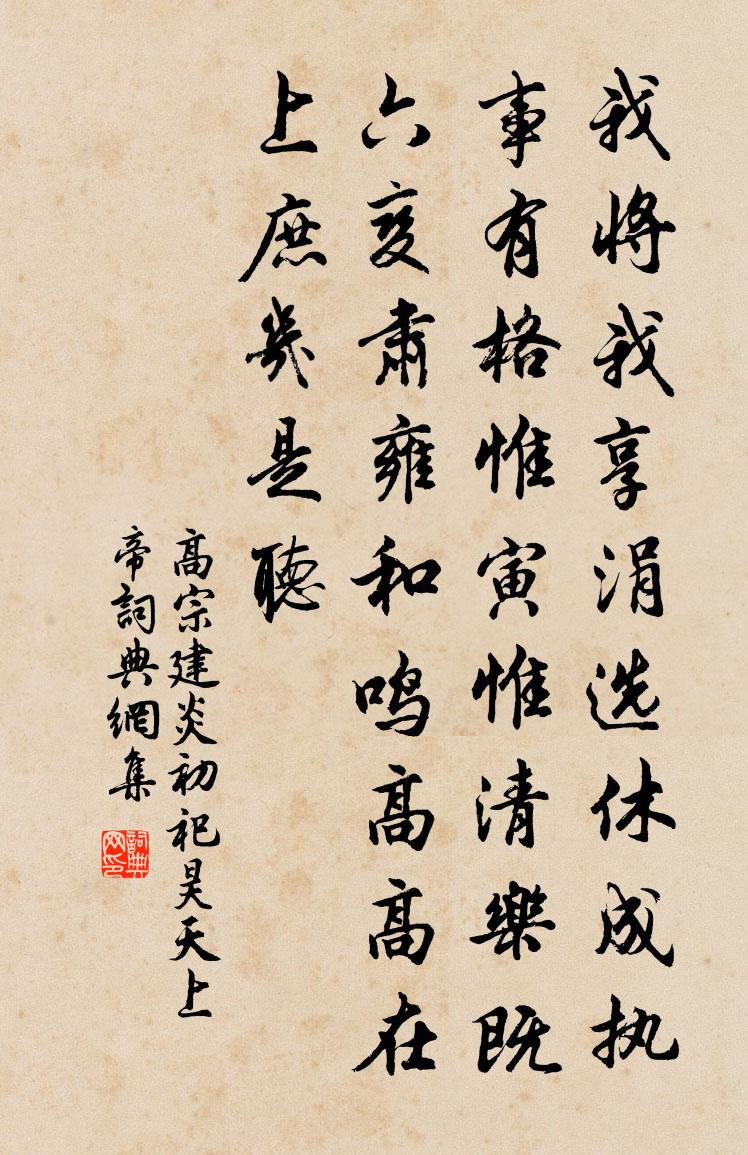 我将我享涓选休成执
事有格惟寅惟清樂既
六变肃雍和鸣高高在
上庶幾是聽
高宗建炎初祀昊天上
帝詞典網集
詞典
网印